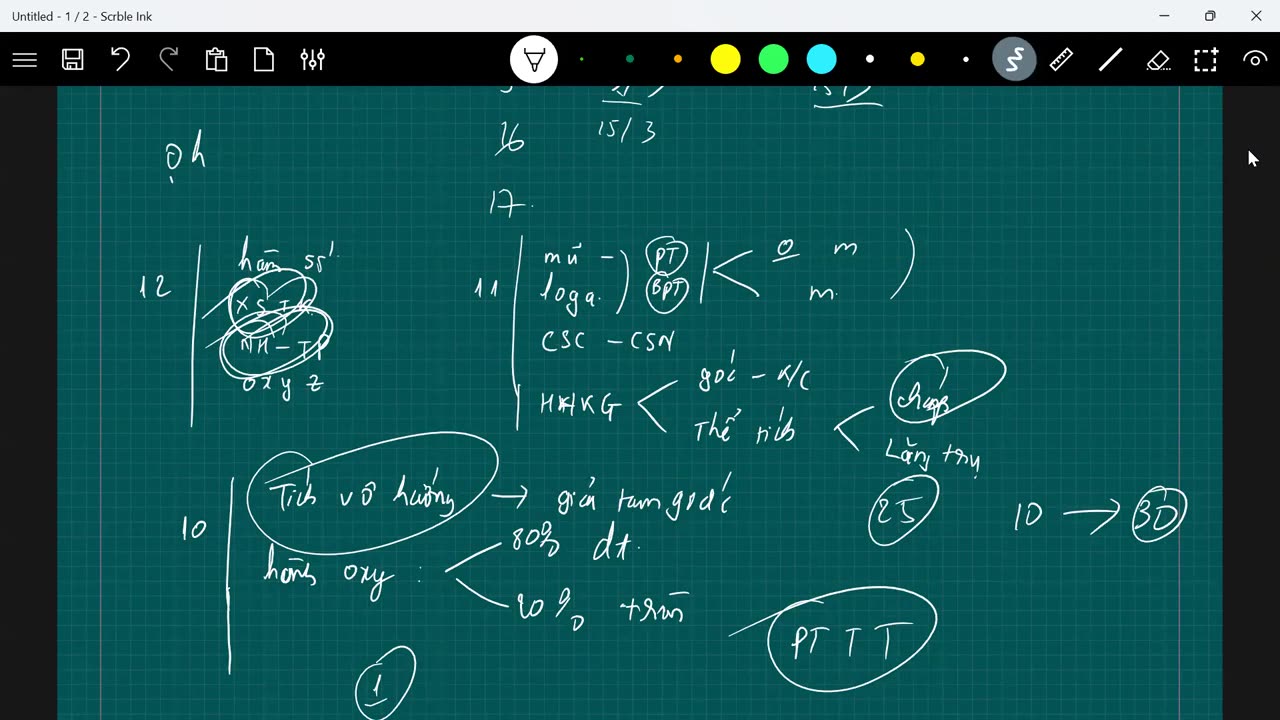 Untitled - 1 / 2 - Scrble Ink
16 15/3
ọh
17.
12 hàm số
XSTK
NH - TP
oxyz
11 mũ - PT 0 m
loga. BPT m.
CSC - CSN
HHKG góc - K/C
Thể tích chóp
Lăng trụ
10 Tích vô hướng → giải tam giác
hình oxy : 80% dt.
20% tròn
25 10 → 30
PTTT
1